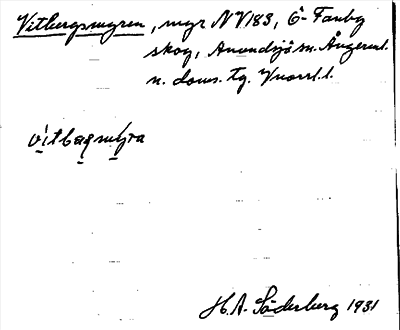 Vitbergsmyren, myr NV 183, Ö-Tanby
skog, Anundsjö sn. Ångerml.
n. doms. Tg. Vnorrl. l.
vitbaqmýra
H.A. Söderberg 1931